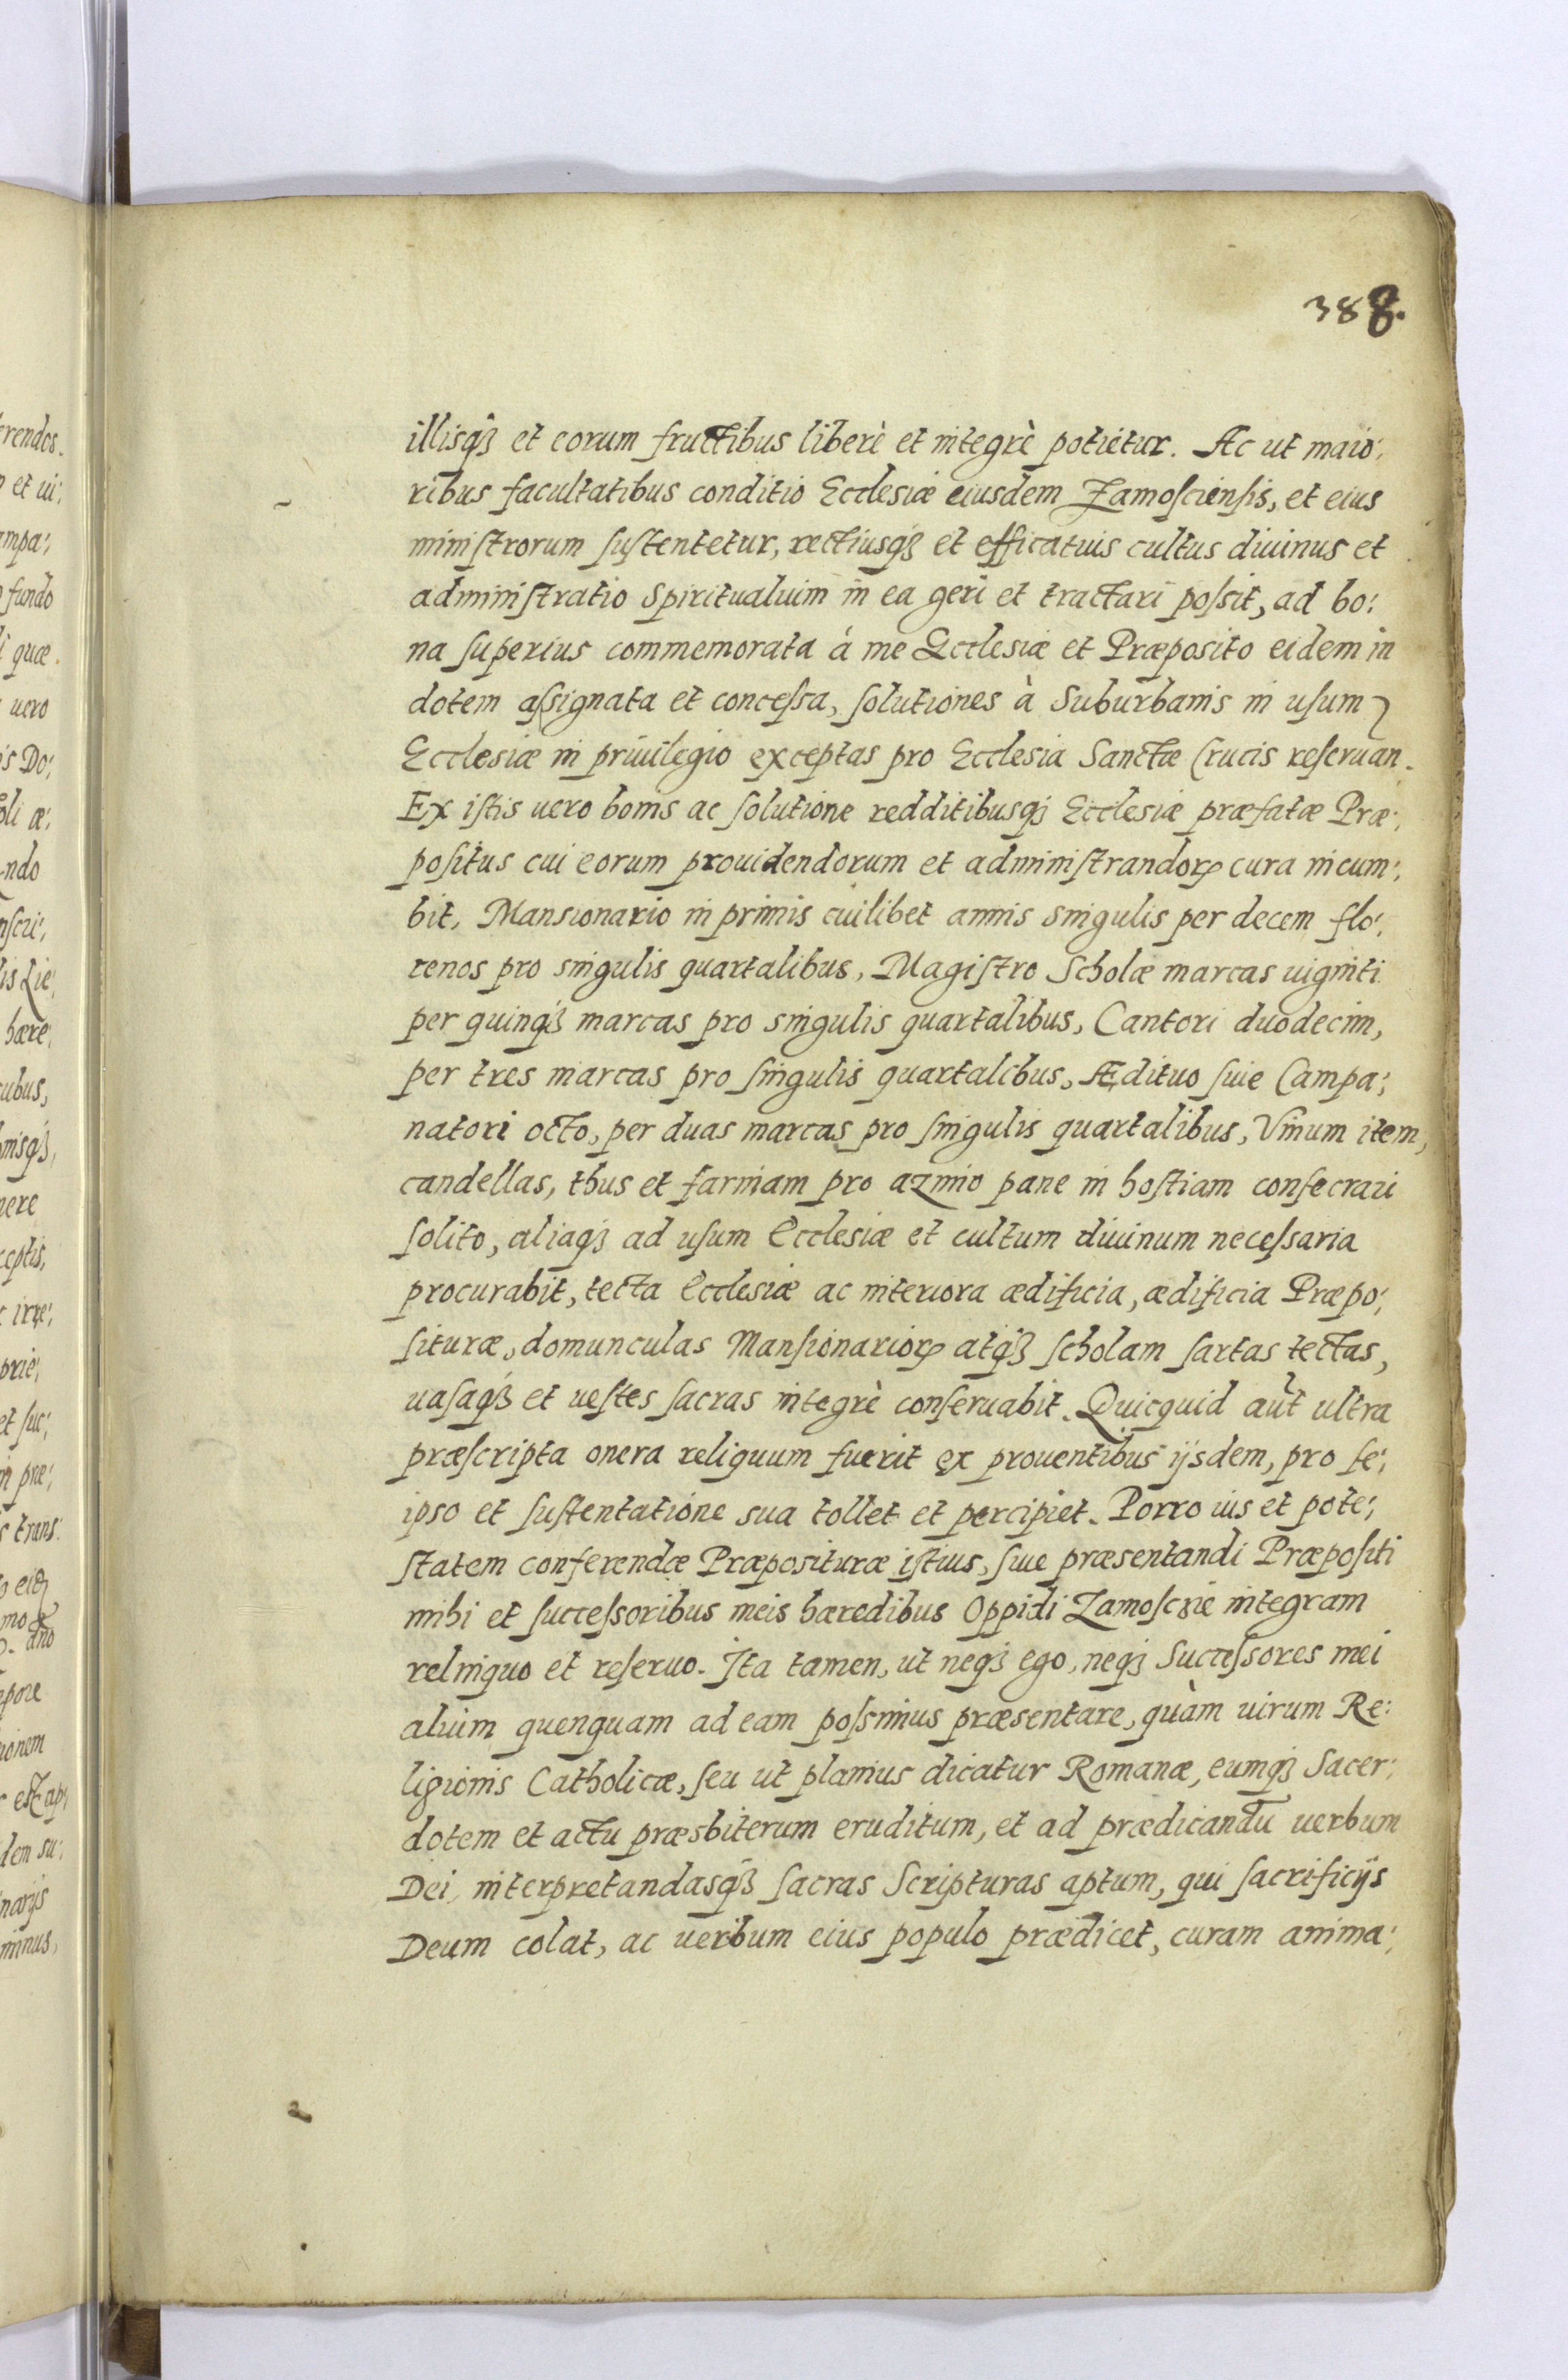 388.
illisqꝫ et eorum fructibus liberè et integrè potietur. Ac ut maio:
ribus facultatibus conditio Ecclesiæ eiusdem Zamoſcienſis, et eius
miniſtrorum ſuſtentetur, rectiusqꝫ et efficatius cultus diuinus et
adminiſtratio Spiritualium in ea geri et tractari poſsit, ad bo:
na ſuperius commemorata á me Ecclesiæ et Præposito eidem in
dotem aſsignata et conceſsa, ſolutiones à Suburbanis in uſum
Ecclesiæ in priuilegio exceptas pro Ecclesia Sanctæ Crucis reſeruan.
Ex iſtis uero bonis ac ſolutione redditibusqꝫ Ecclesiæ præfatæ Præ:
poſitus cui eorum prouidendorum et adminiſtrandorꝝ cura incum:
bit, Mansionario in primis cuilibet annis singulis per decem flo:
renos pro singulis quartalibus, Magiſtro Scholæ marcas uiginti
per quinqꝫ marcas pro singulis quartalibus, Cantori duodecim,
per tres marcas pro ſingulis quartalibus, Ædituo ſiue Campa:
natori octo, per duas marcas pro ſingulis quartalibus, Vinum item,
candellas, thus et farinam pro azimo pane in hoſtiam conſecrari
ſolito, aliaqꝫ ad uſum Ecclesiæ et cultum diuinum neceſsaria
procurabit, tecta Ecclesiæ ac interiora ædificia, ædificia Præpo:
ſituræ, domunculas Manſionariorꝝ atqꝫ ſcholam ſartas tectas,
uaſaqꝫ et ueſtes ſacras integrè conſeruabit. Quicquid aut̃ ultra
præſcripta onera reliquum fuerit ex prouentibus ijsdem, pro ſe:
ipso et ſuſtentatione sua tollet et percipiet. Porro ius et pote:
ſtatem conferendæ Præposituræ iſtius, ſiue præsentandi Præpoſiti
mihi et ſucceſsoribus meis hæredibus Oppidi Zamoſcie integram
relinquo et reſeruo. Ita tamen, ut neqꝫ ego, neqꝫ Succeſsores mei
alium quenquam ad eam poſsimus præsentare, quàm uirum Re:
ligionis Catholicæ, ſeu ut planius dicatur Romanæ, eumqꝫ Sacer:
dotem et actu præsbiterum eruditum, et ad prædicandũ uerbum
Dei, interpretandasqꝫ ſacras Scripturas aptum, qui ſacrificijs
Deum colat, ac uerbum eius populo prædicet, curam anima: